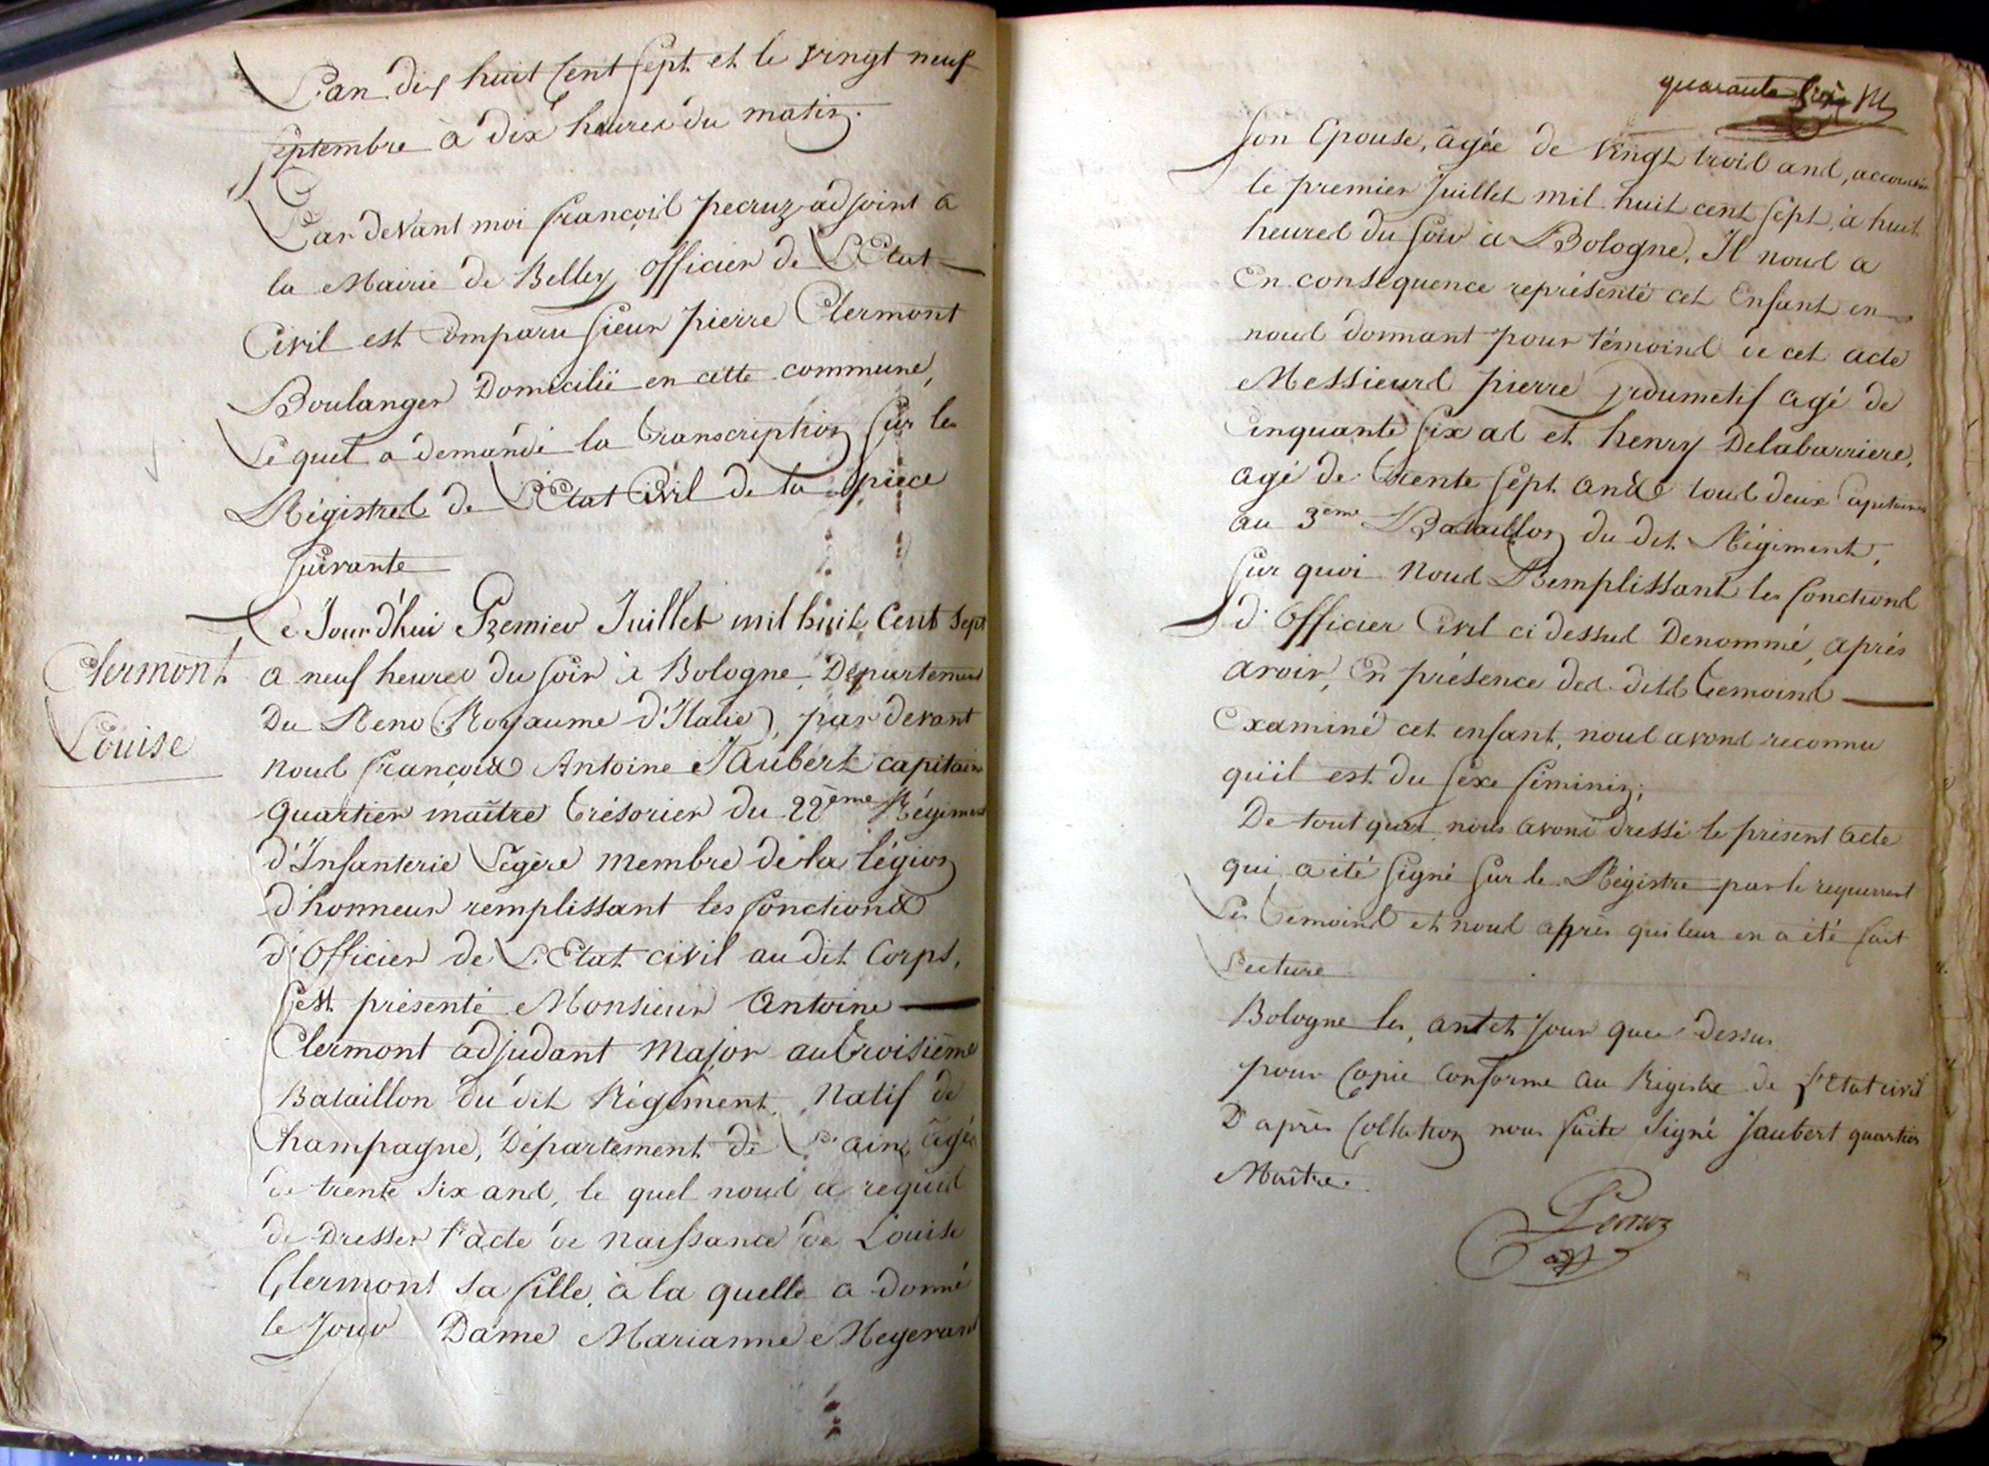 L'an dix huit Cent Sept et le vingt neuf
Septembre à dix heures du matin.
Par devant moi françois pecruz adjoint à
la Mairie de Belley officier de L'Etat
Civil est Comparu Sieur pierre Clermont
Boulanger Domicilié en cette commune,
Lequel a demandé la Transcription Sur les
Régistres de L'Etat Civil de la pièce
Suivante
Ce Jourd'hui Premier Juillet mil huit Cent Sept
a neuf heures du Soir à Bologne, Département
Du Reno (Royaume d'Italie), par devant
nous françois Antoine Jaubert capitaine
quartier maître Trésorier du 22ème Régiment
d'Infanterie Légère membre de la légion
d'honneur remplissant les fonctions
d'Officier de L'Etat civil au dit Corps,
S'est présenté Monsieur Antoine
Clermont adjudant Major au Troisième
Bataillon du dit Régiment, Natif de
Champagne, Département de L'ain, agé
de trente Six ans, le quel nous a requis
de Dresser l'acte de naissance de Louise
Clermont Sa fille, à la quelle a donné
le Jour Dame Marianne Megerand
Clermont
Louise
quarante Six
Son Epouse, agée de Vingt trois ans, accouchée
le premier Juillet mil huit cent Sept, à huit
heures du Soir à Bologne. Il nous a
En consequence représenté cet Enfant en
nous donnant pour témoins de cet acte
Messieurs pierre agé de
Cinquante Six as et henry Delabarriere,
agé de Trente Sept ans tous deux Capitaines
au 3ème Bataillon du dit Régiment,
Sur quoi Nous Remplissant les fonctions
d'Officier Civil ci dessus Denommé, après
avoir, En présence des dits Temoins
Examiné cet enfant, nous avons reconnu
qu'il est du Sexe féminin;
De tout quoi nous avons dressé le présent acte
qui a été Signé Sur le Régistre par le requerrant
Les Temoins et nous après que leur en a été fait
Lecture
Bologne les an et Jour que dessus
pour Copie Conforme au Régistre de l'Etat civil
D'après Collation nous faite Signé Jaubert quartier
Maître.